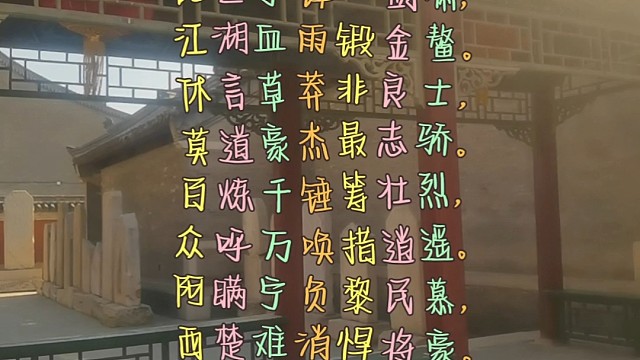 江湖血雨锻金鳌。
休言草莽非良士,
莫道豪杰最志骄。
百炼千锤筹壮烈,
众呼万唤指逍遥。
阿瞒宁负黎民慕,
西楚难消悍将豪。